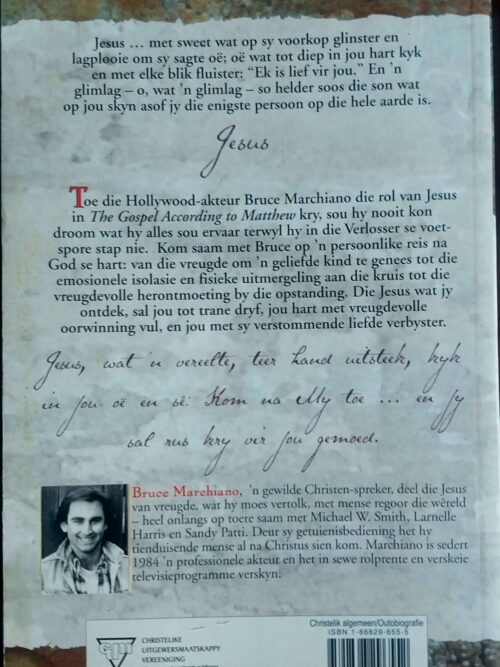 Jesus ... met sweet wat op sy voorkop glinster en
lagplooie om sy sagte oë; oë wat tot diep in jou hart kyk
en met elke blik fluister: “Ek is lief vir jou.” En ’n
glimlag – o, wat ’n glimlag – so helder soos die son wat
op jou skyn asof jy die enigste persoon op die hele aarde is.
Jesus
Toe die Hollywood-akteur Bruce Marchiano die rol van Jesus
in The Gospel According to Matthew kry, sou hy nooit kon
droom wat hy alles sou ervaar terwyl hy in die Verlosser se voet-
spore stap nie. Kom saam met Bruce op ’n persoonlike reis na
God se hart: van die vreugde om ’n geliefde kind te genees tot die
emosionele isolasie en fisieke uitmergeling aan die kruis tot die
vreugdevolle herontmoeting by die opstanding. Die Jesus wat jy
ontdek, sal jou tot trane dryf, jou hart met vreugdevolle
oorwinning vul, en jou met sy verstommende liefde verbyster.
Jesus, wat ’n vereelte, teer hand uitsteek, kyk
in jou oë en sê: Kom na My toe ... en jy
sal rus kry vir jou gemoed.
Bruce Marchiano, ’n gewilde Christen-spreker, deel die Jesus
van vreugde, wat hy moes vertolk, met mense regoor die wêreld
– heel onlangs op toere saam met Michael W. Smith, Larnelle
Harris en Sandy Patti. Deur sy getuienisbediening het hy
tienduisende mense al na Christus sien kom. Marchiano is sedert
1984 ’n professionele akteur en het in sewe rolprente en verskeie
televisieprogramme verskyn.
Christelik algemeen/Outobiografie
ISBN 1-86829-655-5
CHRISTELIKE
UITGEWERSMAATSKAPPY
VEREENIGING